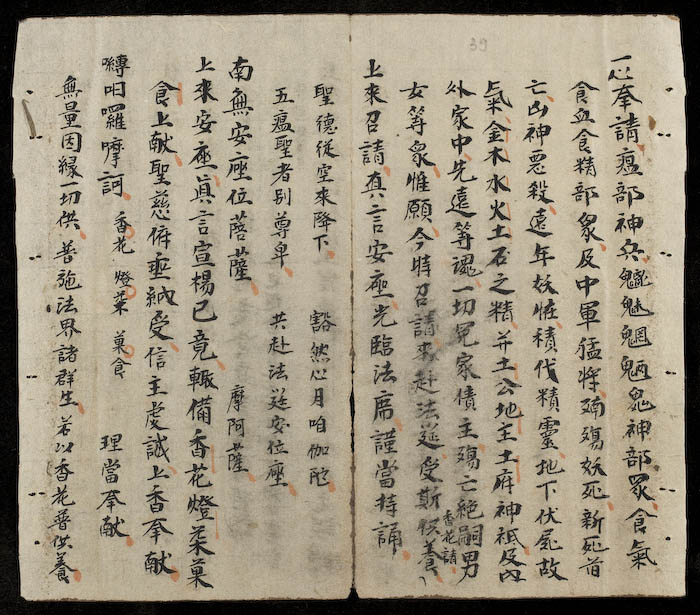 39
一心奉請瘟部神兵魑魅魍魎鬼神部眾食氣
食血食精部衆及中軍猛將殤妖死新死首
亡凶神惡殺遠年妖怪積代精靈地下伏屍故
氣金木水火土石之精并土公地主土府神祗及內
外家中先遠等魂一切冤家債主殤亡絶嗣男
女等衆惟願今時召請來赴法筵受斯供養 香花請
上來召請真言安座光臨法席謹當持誦
聖德從空來降下 豁然心月咱伽陁
五瘟聖者别尊卑 共赴法筵安位座
南無安座位菩薩 摩阿薩
上來安座眞言宣楊已竟輙備香花燈菜菓
食上献聖慈俯垂納受信主虔誠上香奉献
嚩日囉摩訶 香花 燈菜 菓食 理當奉献
無量因緣一切供 普施法界諸群生 若以香花普供養